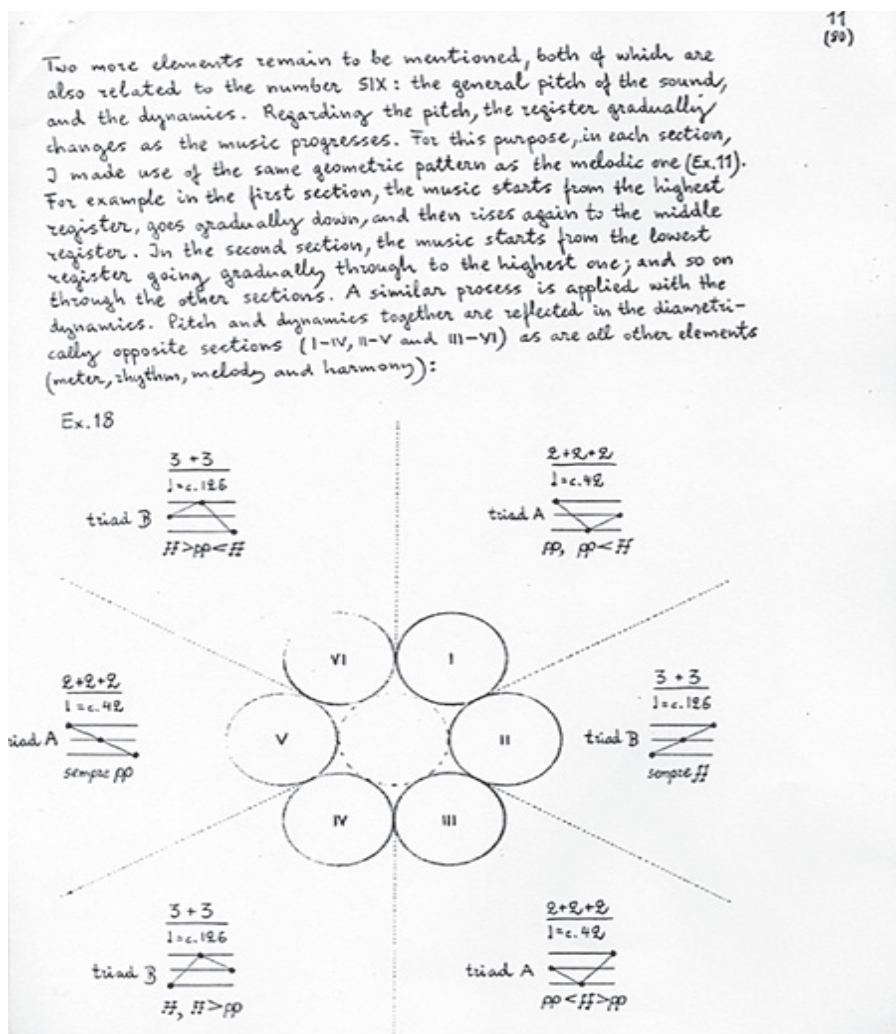 11
(90)
Two more elements remain to be mentioned, both of which are
also related to the number SIX: the general pitch of the sound,
and the dynamics. Regarding the pitch, the register gradually
changes as the music progresses. For this purpose, in each section,
I made use of the same geometric pattern as the melodic one (Ex.11).
For example in the first section, the music starts from the highest
register, goes gradually down, and then rises again to the middle
register. In the second section, the music starts from the lowest
register going gradually through to the highest one; and so on
through the other sections. A similar process is applied with the
dynamics. Pitch and dynamics together are reflected in the diametri-
cally opposite sections (I-IV, II-V and III-VI) as are all other elements
(meter, rhythm, melody and harmony):
Ex.18
3+3
♩=c.126
triad B
ff>pp<ff
2+2+2
♩=c.42
triad A
pp, pp<ff
VI
I
2+2+2
♩=c.42
riad A
sempre pp
V
II
3+3
♩=c.126
triad B
sempre ff
IV
III
3+3
♩=c.126
triad B
ff, ff>pp
2+2+2
♩=c.42
triad A
pp<ff>pp